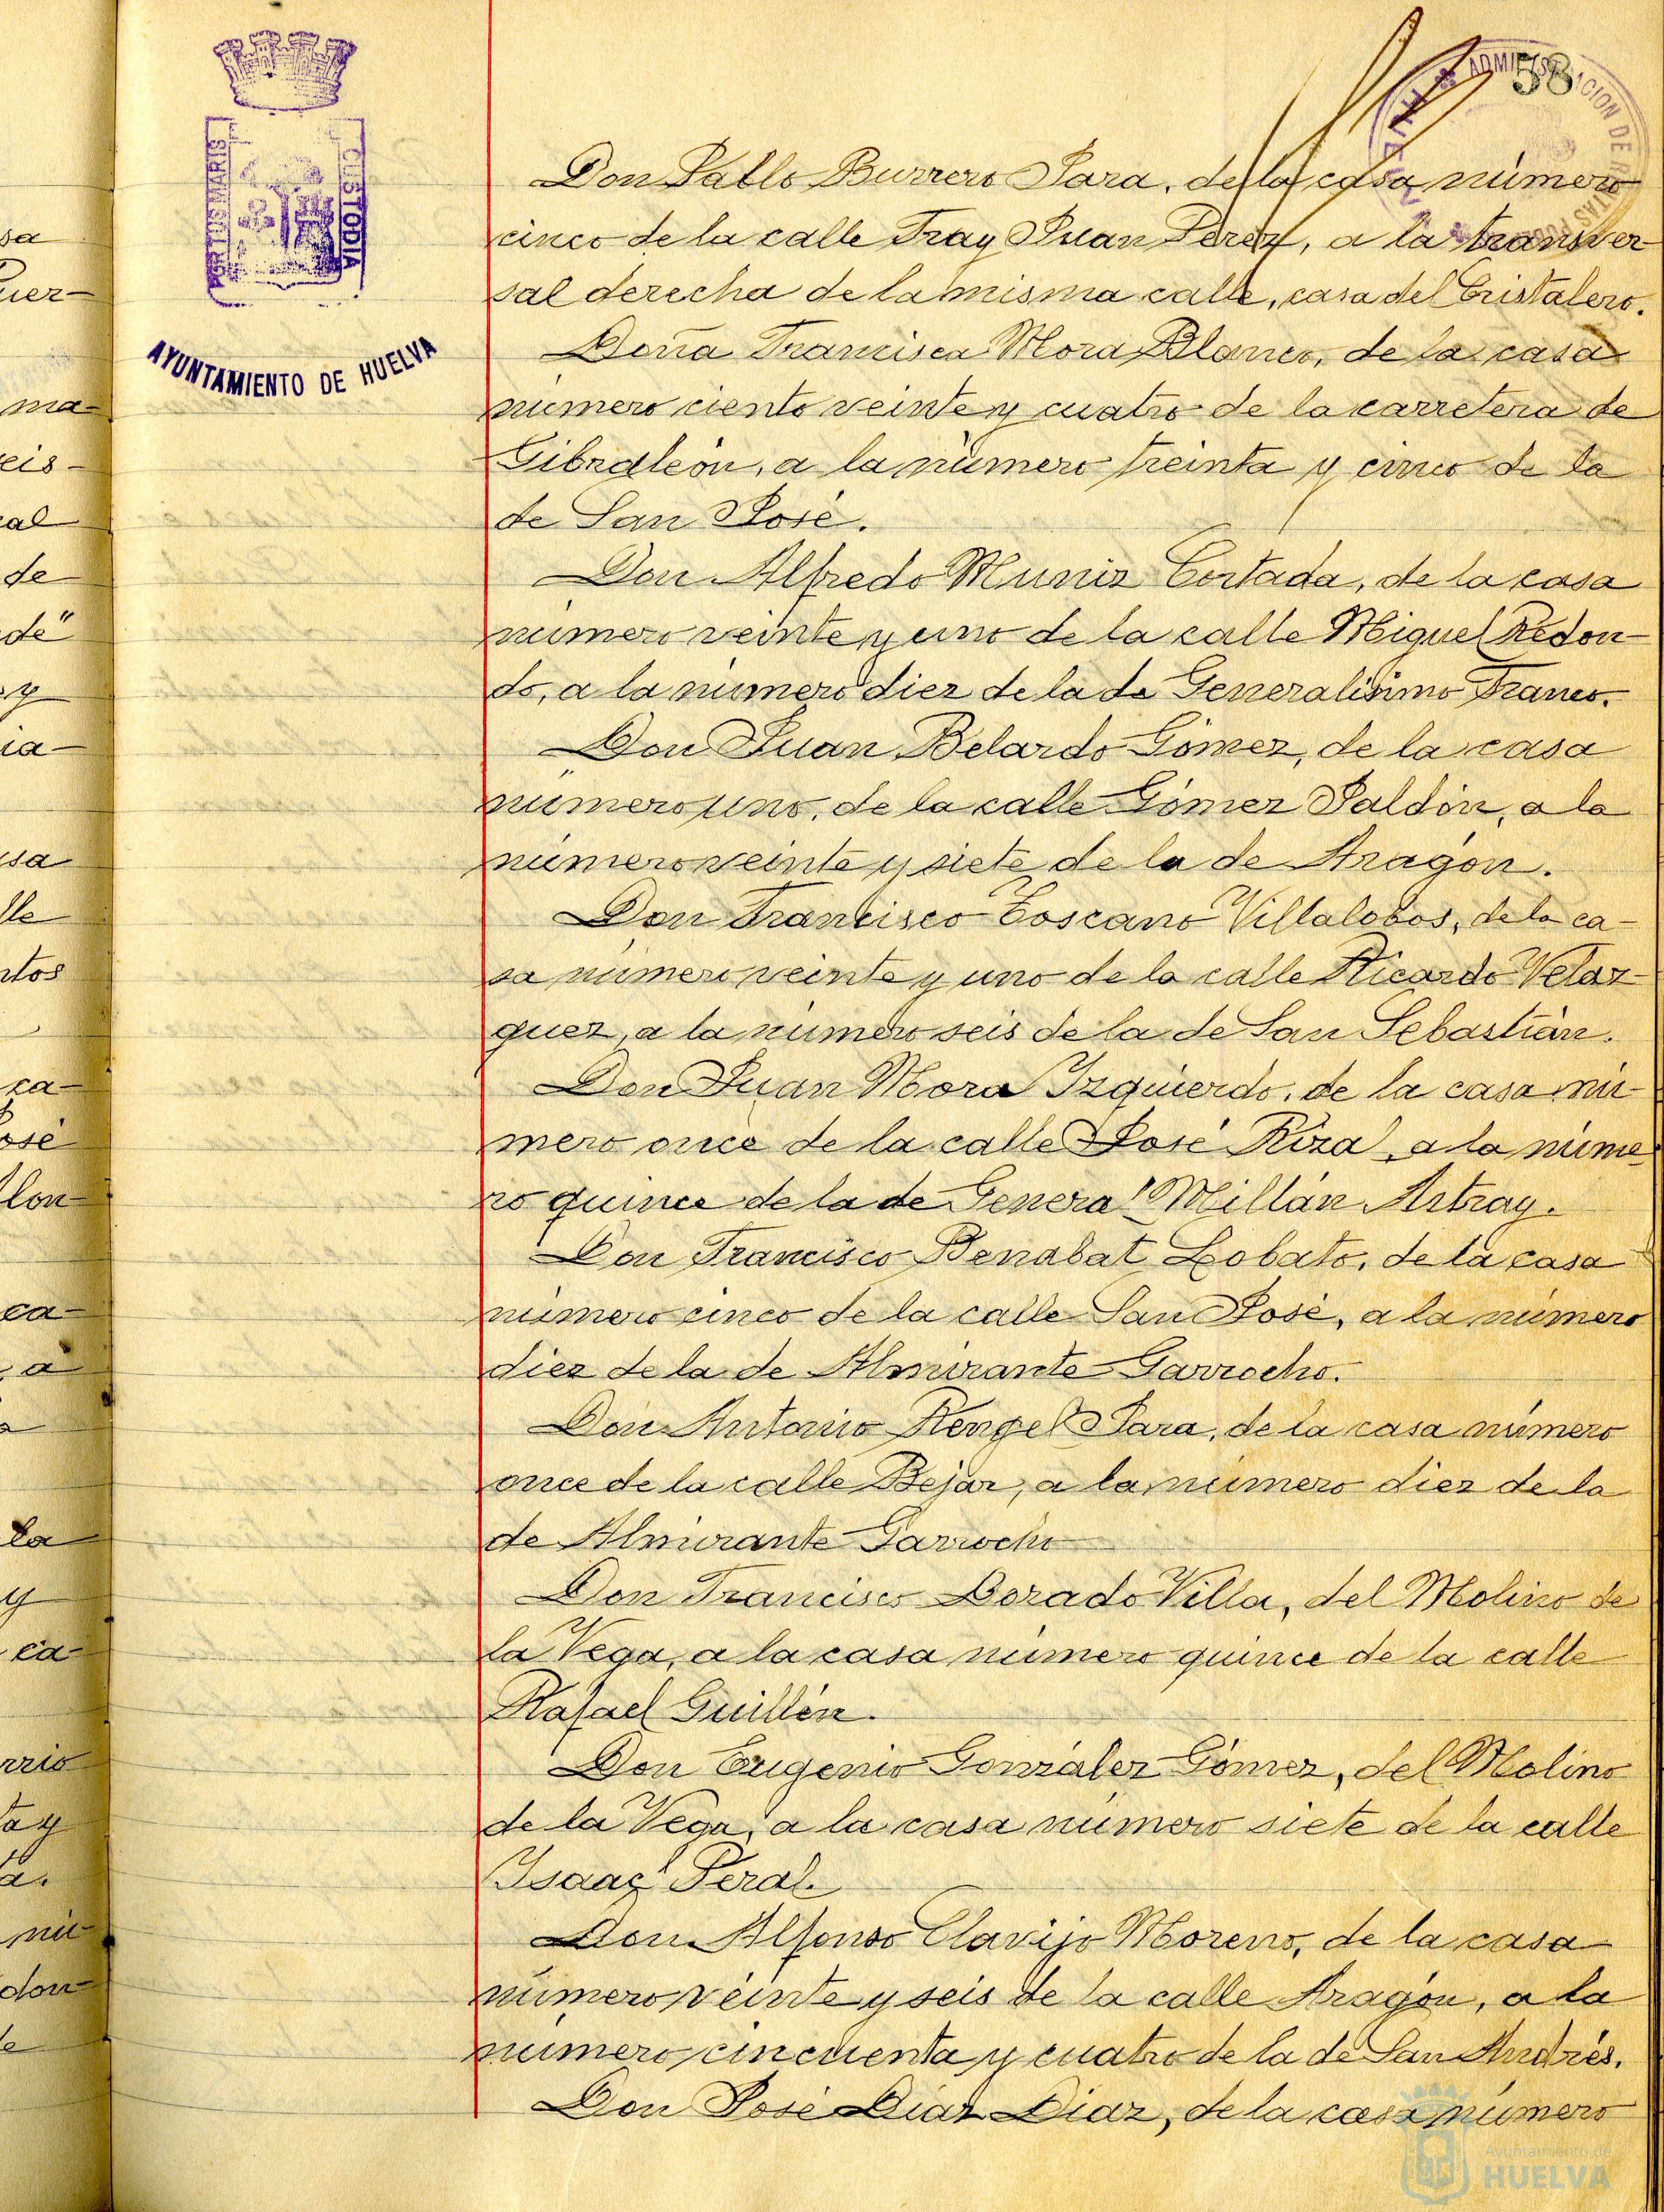 58
ADMINISTRACION DE RENTAS
PORTUS MARIS
CUSTODIA
AYUNTAMIENTO DE HUELVA
Don Pablo Burrero Para, de la casa número
cinco de la calle Fray Juan Perez, a la transver
sal derecha de la misma calle, casa del Cristalero.
Doña Francisca Mora Blanco, de la casa
número ciento veinte y cuatro de la carretera de
Gibraleón, a la número treinta y cinco de la
de San José.
Don Alfredo Muniz Cortada, de la casa
número veinte y uno de la calle Miguel Redon-
do, a la número diez de la de Generalísimo Franco.
Don Juan Belardo Gómez, de la casa
número uno, de la calle Gómez Jaldón, a la
número veinte y siete de la de Aragón.
Don Francisco Toscano Villalobos, de la ca-
sa número veinte y uno de la calle Ricardo Velaz-
quez, a la número seis de la de San Sebastián.
Don Juan Mora Izquierdo, de la casa nú-
mero once de la calle José Riza, a la núme
ro quince de la de General Millán Astray.
Don Francisco Benabat Lobato, de la casa
número cinco de la calle San José, a la número
diez de la de Almirante Garrocho.
Don Antonio Rengel Para, de la casa número
once de la calle Bejar, a la número diez de la
de Almirante Garrocho
Don Francisco Dorado Villa, del Molino de
la Vega, a la casa número quince de la calle
Rafael Guillén.
Don Eugenio González Gómez, del Molino
de la Vega, a la casa número siete de la calle
Isaac Peral.
Don Alfonso Clavijo Moreno, de la casa
número veinte y seis de la calle Aragón, a la
número cincuenta y cuatro de la de San Andrés.
Don José Díaz Díaz, de la casa número
Ayuntamiento de
HUELVA